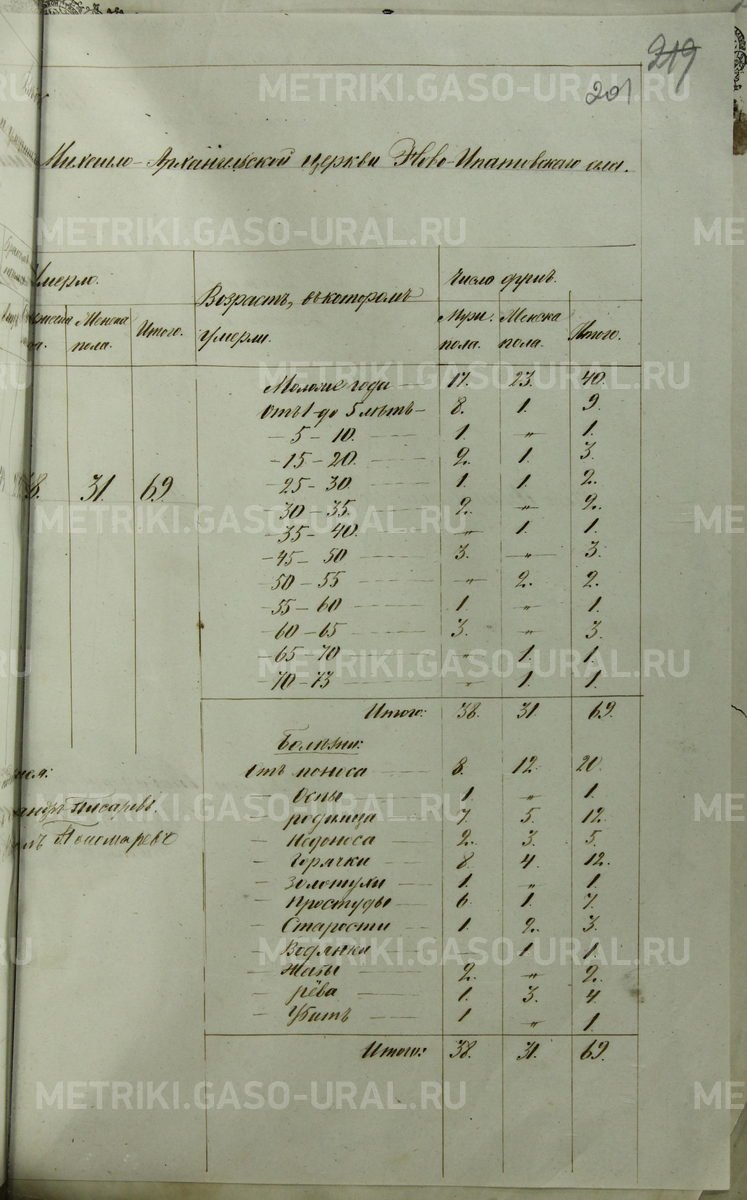 219
201
Михаило-Архангельской церкви Ново-Ипатовскаго села.
Умерло.
Возрастъ, въ которомъ умерли.
Число душъ.
Женска пола.
Итого.
Муж. пола.
Женска пола.
Итого.
38. 31. 69
Моложе года — 17. 23. 40.
Отъ 1 до 5 лѣтъ — 8. 1. 9.
— 5 — 10. — 1. „ 1.
— 15 — 20. — 2. 1. 3.
— 25 — 30. — 1. 1. 2.
— 30 — 35. — 2. „ 2.
— 35 — 40. — „ 1. 1.
— 45 — 50 — 3. „ 3.
— 50 — 55 — „ 2. 2.
— 55 — 60 — 1. „ 1.
— 60 — 65 — 3. „ 3.
— 65 — 70 — „ 1. 1.
— 70 — 73 — „ 1. 1.
Итого: 38. 31. 69.
Болѣзни:
Отъ поноса — 8. 12. 20.
— Оспы — 1. „ 1.
— родимца — 7. 5. 12.
— Недоноса — 2. 3. 5.
— Горячки — 8 4. 12.
— Золотухи — 1. „ 1.
— Простуды — 6. 1. 7.
— Старости — 1. 2. 3.
— Водянки — „ 1. 1.
— Жабы — 2. „ 2.
— рёва — 1. 3. 4
— Убитъ — 1 „ 1.
Итого: 38. 31. 69.
Писаревъ.
Пономаревъ
METRIKI.GASO-URAL.RU